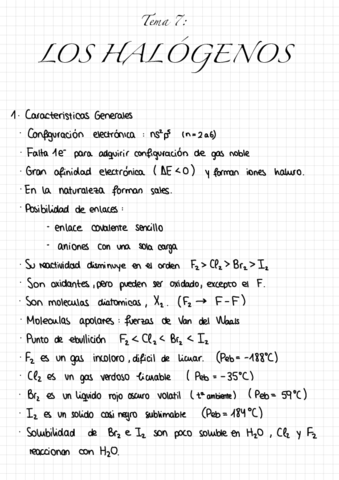 Tema 7:
LOS HALÓGENOS
1. Características Generales
· Configuración electrónica : ns²p⁵ (n=2 a 6)
· Falta 1e⁻ para adquirir configuración de gas noble
· Gran afinidad electrónica (ΔE<0) y forman iones haluro.
· En la naturaleza forman sales.
· Posibilidad de enlaces :
- enlace covalente sencillo
- aniones con una sola carga
· Su reactividad disminuye en el orden F₂ > Cl₂ > Br₂ > I₂
· Son oxidantes, pero pueden ser oxidado, excepto el F.
· Son moleculas diatomicas, X₂. (F₂ → F-F)
· Moleculas apolares : fuerzas de Van del Waals
· Punto de ebullición F₂ < Cl₂ < Br₂ < I₂
· F₂ es un gas incoloro, dificil de licuar. (Peb = -188°C)
· Cl₂ es un gas verdoso licuable (Peb = -35°C)
· Br₂ es un liquido rojo oscuro volatil (tª ambiente) (Peb = 59°C)
· I₂ es un solido casi negro sublimable (Peb = 184°C)
· Solubilidad de Br₂ e I₂ son poco soluble en H₂O, Cl₂ y F₂
reaccionan con H₂O.